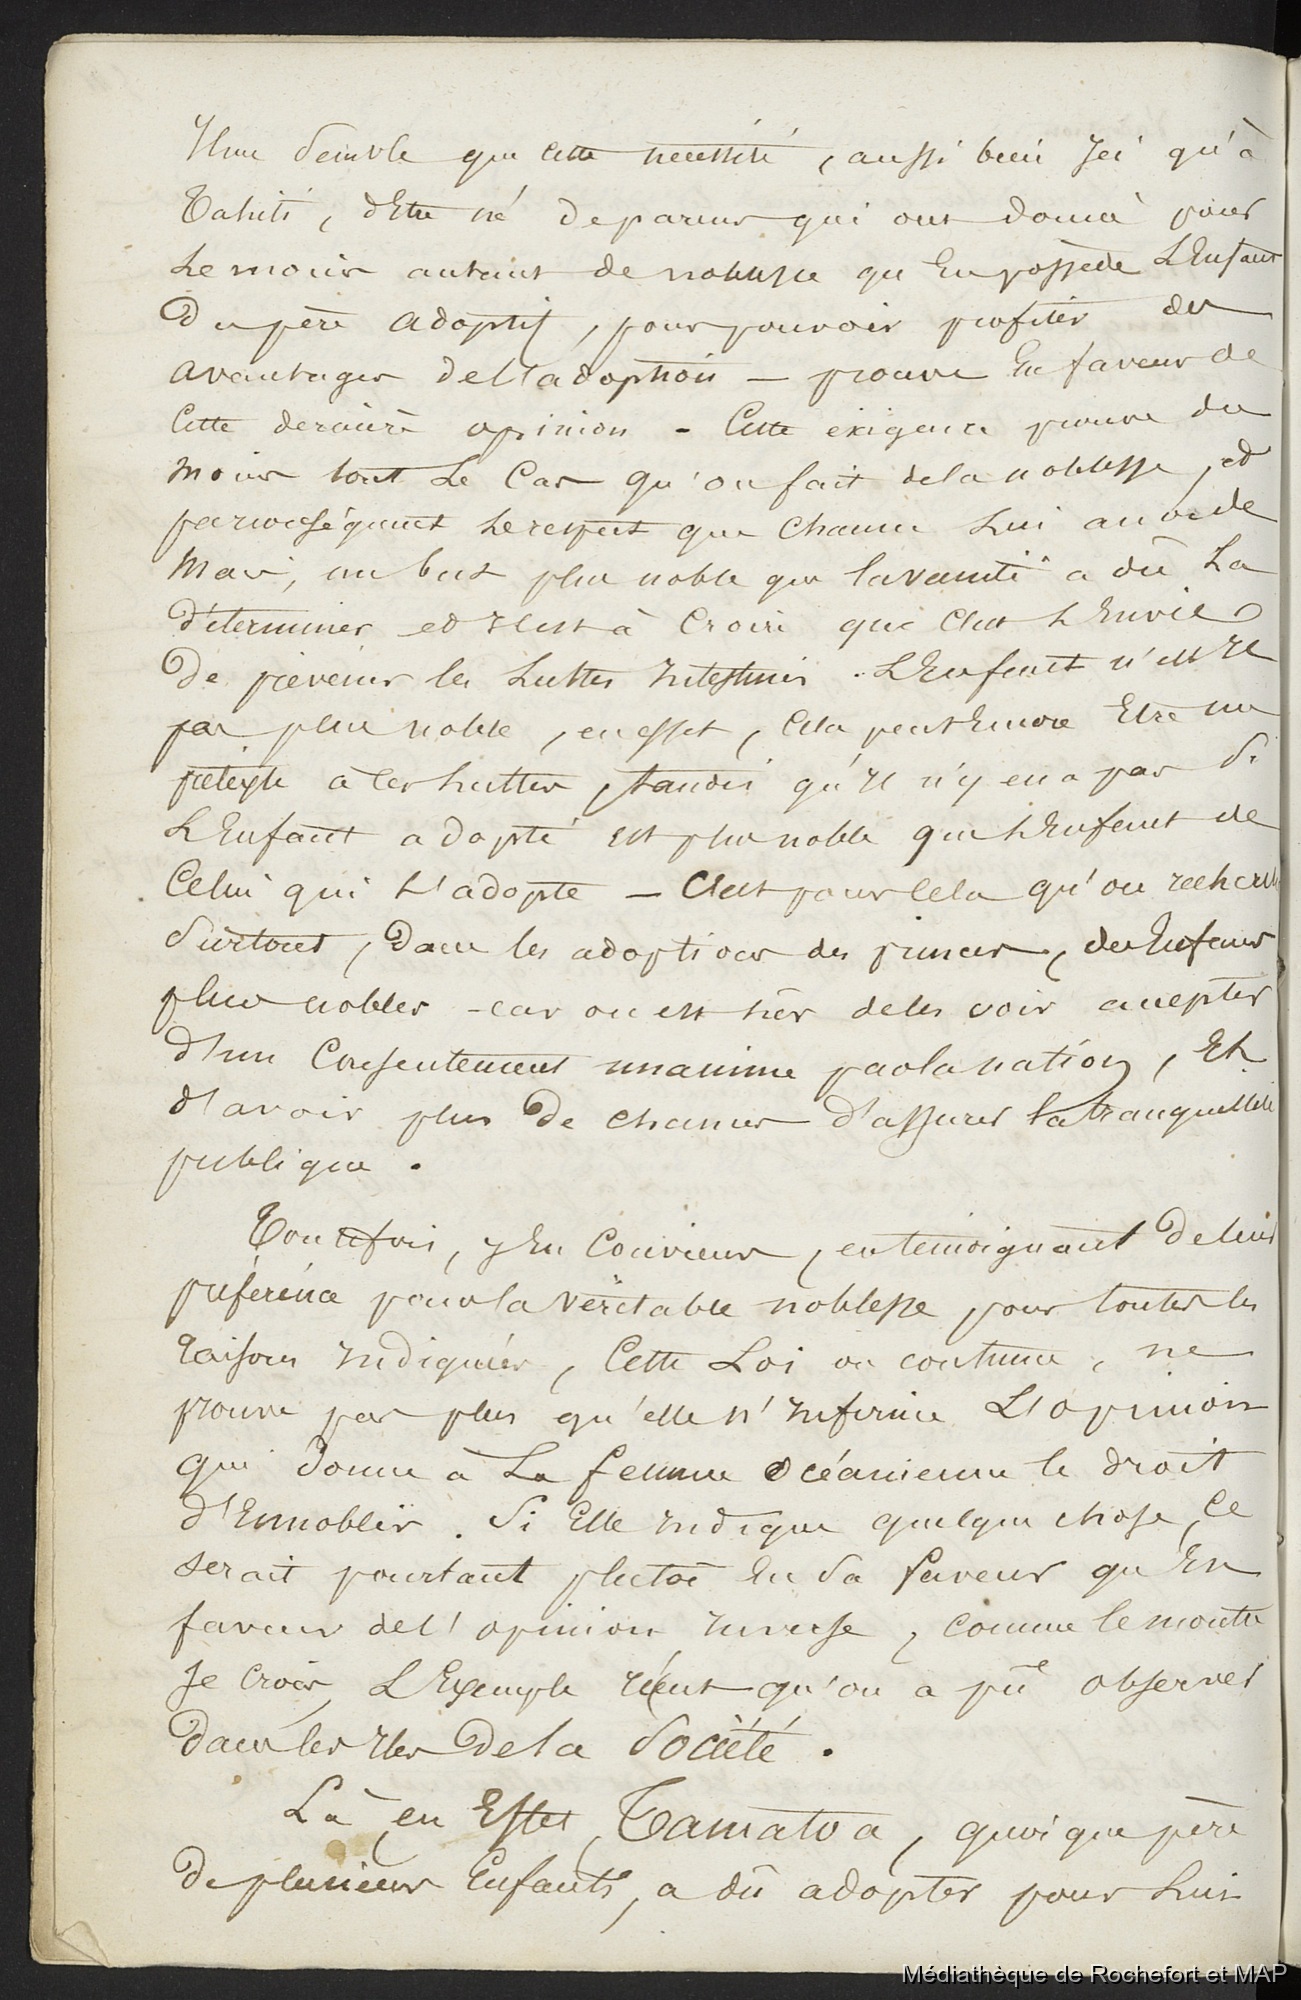 Il me semble que cette necessité, aussi bien ici qu'à
Tahiti, d'Etre né de parens qui ont donné pour
Le moins autant de noblesse qu'En possède L'Enfant
Du père adoptif, pour pouvoir profiter des
avantages de l'adoption — prouve En faveur de
Cette dernière opinion - Cette exigence prouve du
moins tout Le Cas qu'on fait de la noblesse, et
par conséquent Le respect que Chacun Lui accorde
Mais, un but plus noble que la vanité a dû La
Déterminer et Il est à Croire que C'est L'Envie
De prévenir les Luttes Intestines. L'Enfant n'est Il
pas plus noble, en effet, Cela peut Encore Etre un
prétexte à Ces Luttes, tandis qu'Il n'y en a pas Si
L'Enfant adopté est plus noble que L'Enfant de
Celui qui L'adopte — C'est pour Cela qu'on recherche
Surtout, Dans les adoptions des princes, des Enfans
plus nobles - car on est sûr de les voir accepter
d'un Consentement unanime par la nation, Et
d'avoir plus De chances d'assurer la tranquillité
publique.
Toutefois, j'En Conviens, en temoignant De leur
préférence pour la véritable noblesse pour toutes les
Raisons Indiquées, Cette Loi ou coutume, ne
prouve pas plus qu'elle n'Infirme L'opinion
qui Donne à La femme océanienne le droit
d'Ennoblir. Si Elle Indique quelque chose, Ce
serait pourtant plutôt En Sa faveur qu'En
faveur de l'opinion Inverse, comme le montre
Je Crois, L'Exemple récent qu'on a pu observer
Dans les Iles De la Société.
Là, en Effet, Tamatoa, quoique père
De plusieurs Enfants, a dû adopter pour Lui
Médiathèque de Rochefort et MAP